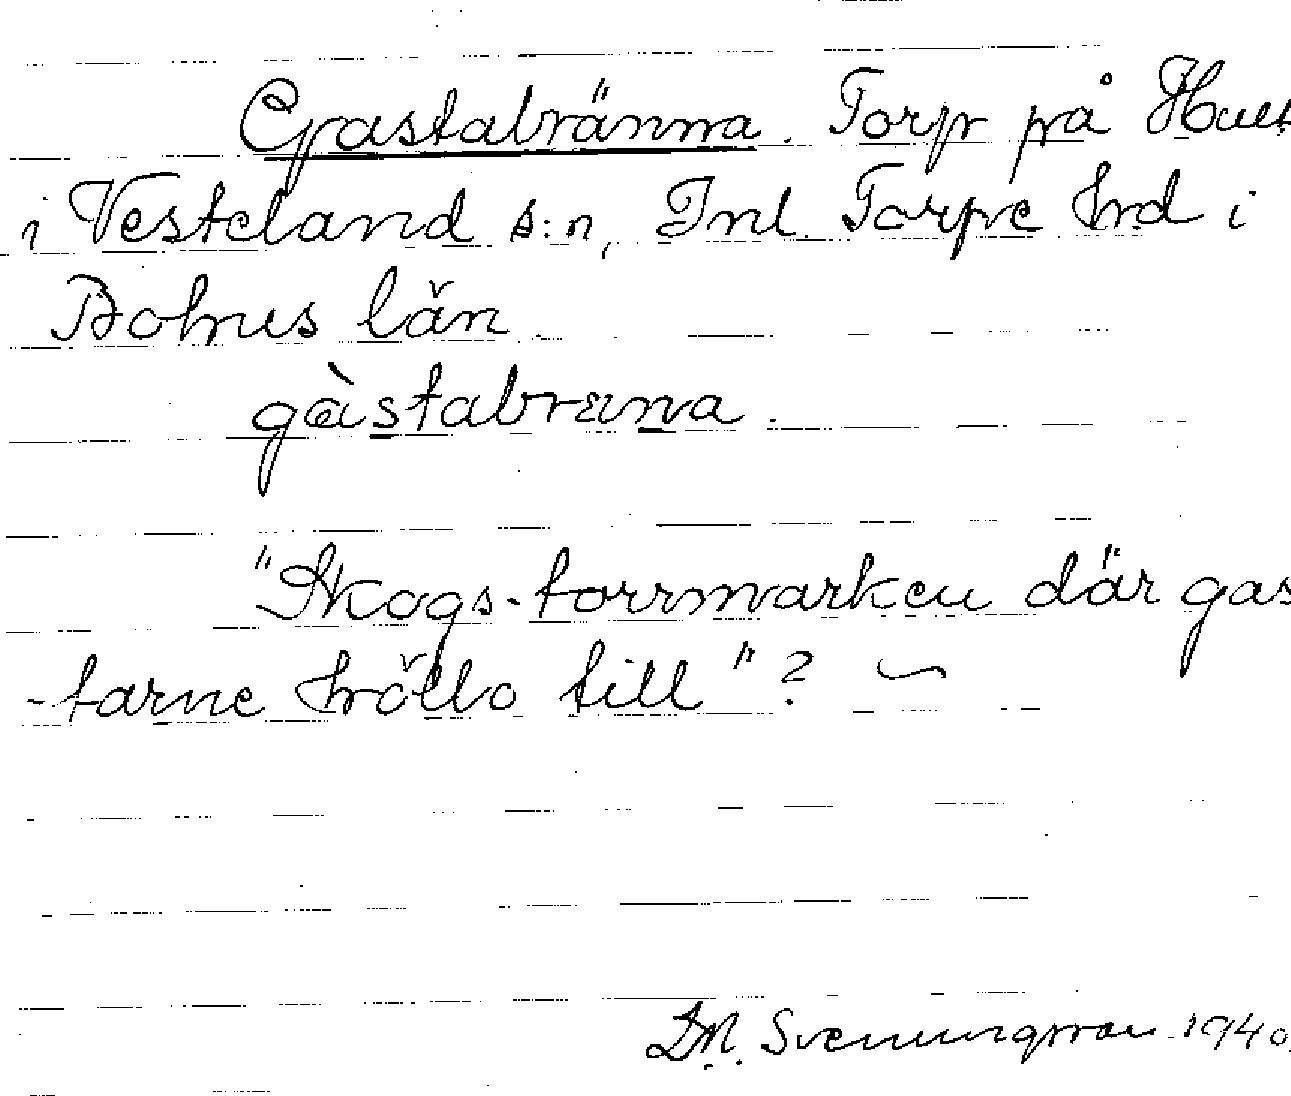 Gastabränna. Torp på Hult
i Vesteland s:n, Inl. Torpe hrd i
Bohus län
gàstabräna.
"Skogs-torrmarken där gas
-tarne höllo till"? ~
D.N. Svenningsson 1940.